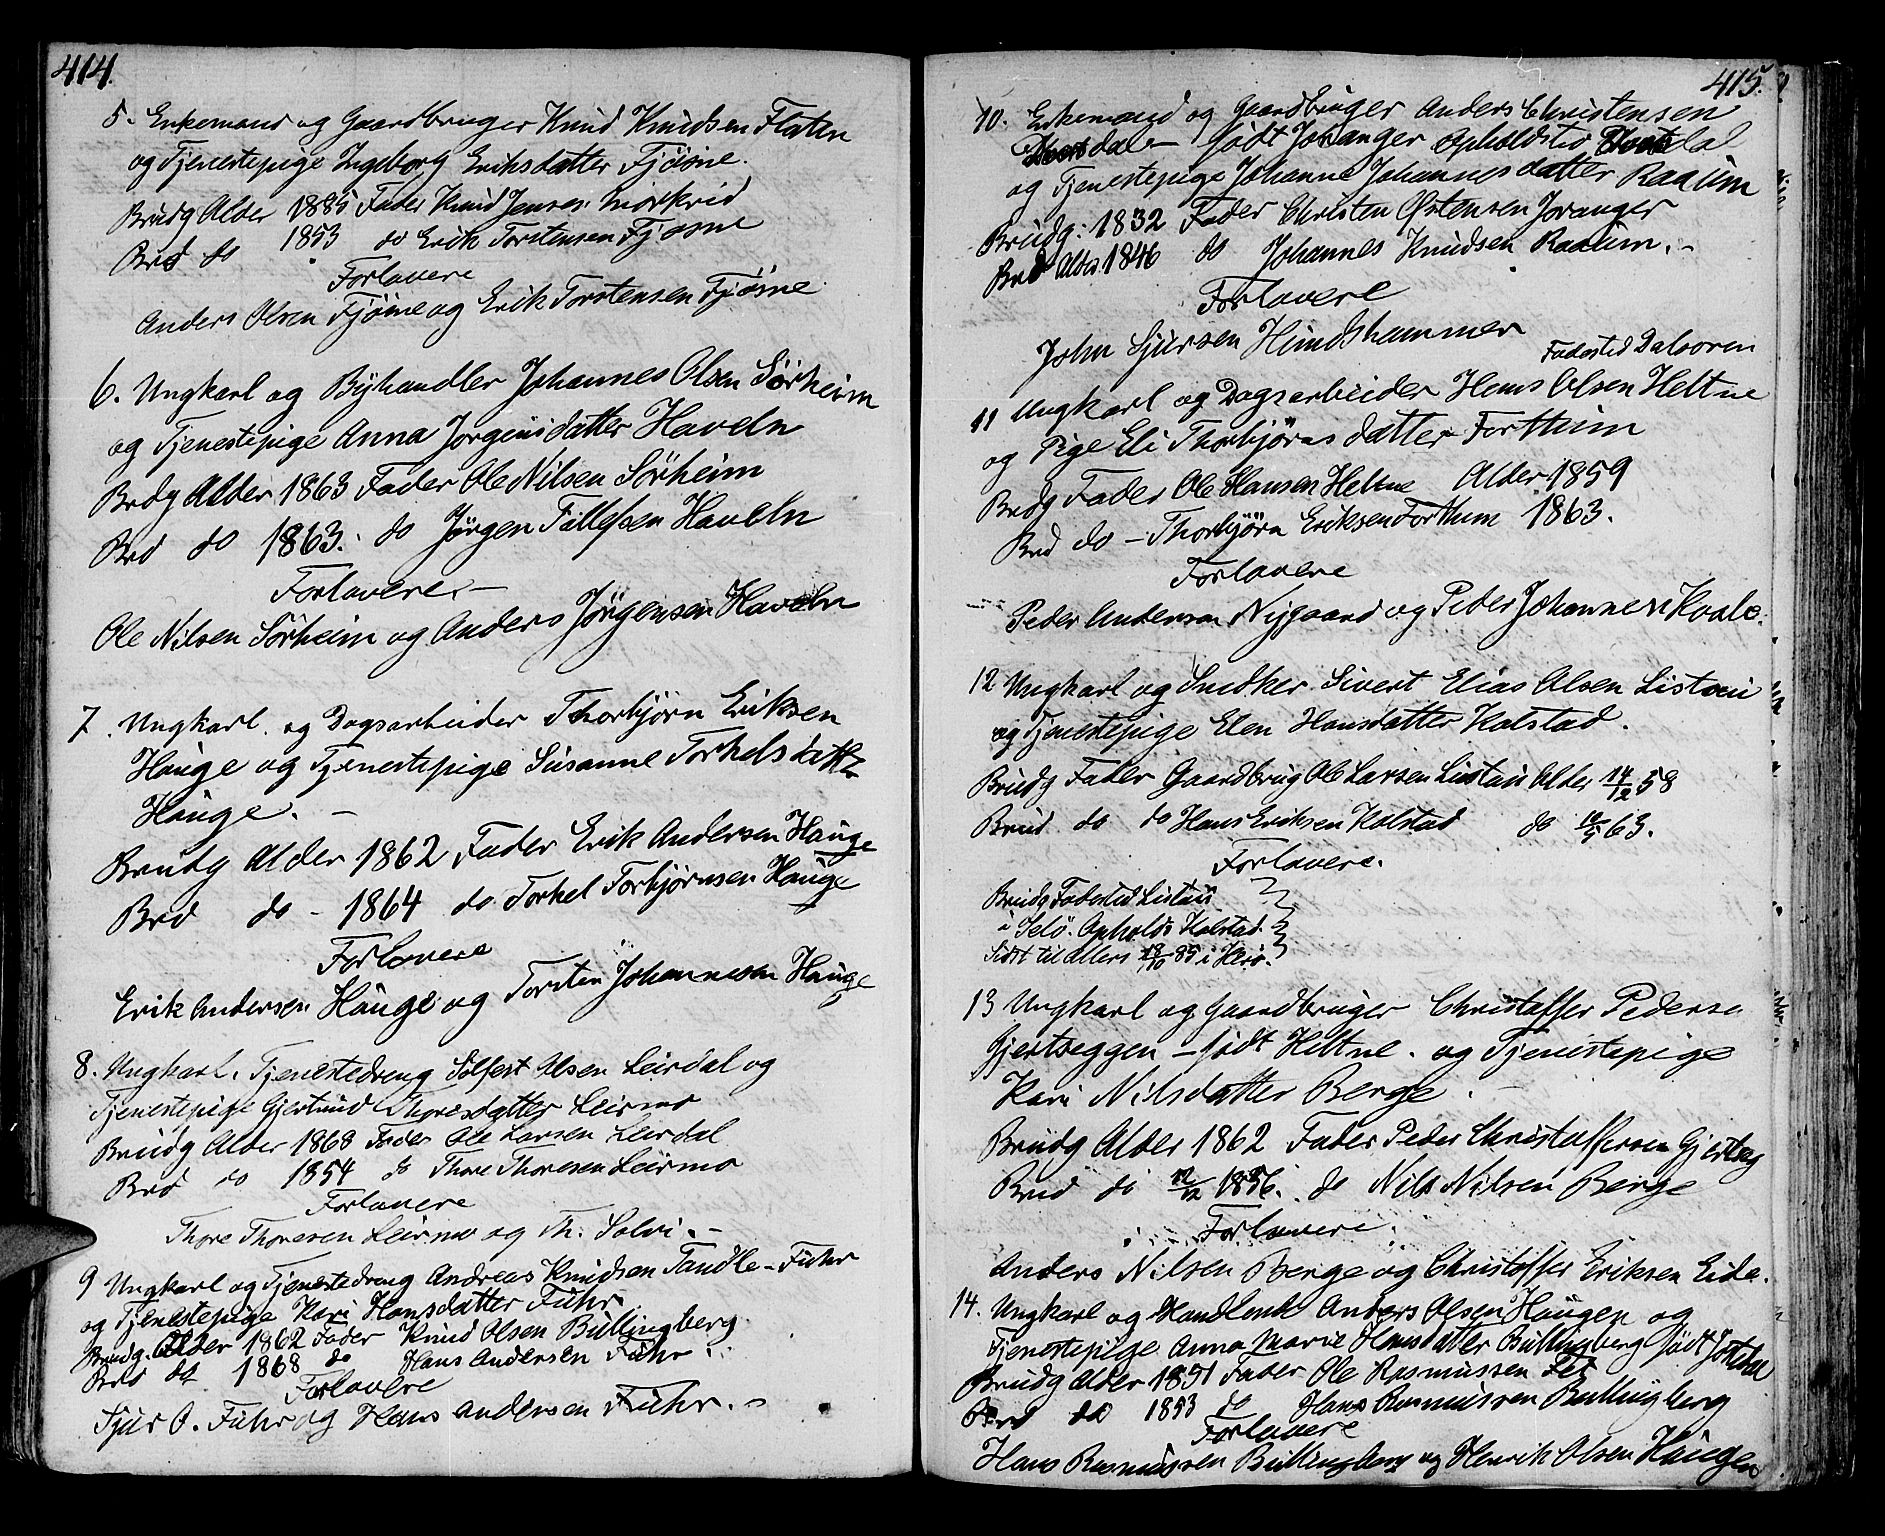 414.
5. Enkemand og Gaardbruger Knud Knudsen Flaten
og Tjenestepige Ingeborg Eriksdatter Fjøsne.
Brudg Alder 1885 Fader Knud Jensen Mørkrid
Brd do 1853 do Erik Torstensen Fjøsne
Forlovere
Anders Olsen Fjøsne og Erik Torstensen Fjøsne
6. Ungkarl og Byhandler Johannes Olsen Sørheim
og Tjenestepige Anna Jørgensdatter Haveln
Brdg Alder 1863 Fader Ole Nilsen Sørheim
Brd do 1863. do Jørgen Tollefsen Haveln
Forlovere. –
Ole Nilsen Sørheim og Anders Jørgensen Haveln
7. Ungkarl og Dagsarbeider Thorbjørn Eriksen
Hauge og Tjenestepige Susanne Torkelsdatter
Hauge. –
Brudg Alder 1862 Fader Erik Andersen Hauge
Brd do – 1864 do Torkel Torbjørnsen Hauge
Forlovere
Erik Andersen Hauge og Torsten Johannesen Hauge
8. Ungkarl. Tjenestedreng Solfest Olsen Leirdal og
Tjenestepige Gjertrud Thoresdatter Leirmo
Brudg Alder 1868 Fader Ole Larsen Leirdal
Brd do 1854 do Thore Thoresen Leirmo
Forlovere
Thore Thoresen Leirmo og Th. Solvi. –
9 Ungkarl og Tjenestedreng Andreas Knudsen Tandle – Fuhr
og Tjenestepige Kari Hansdatter Fuhr
Brudg. Alder 1862 Fader Knud Olsen Bullingberg
Brd do 1868 do Hans Andersen Fuhr.
Forlovere
Sjur O. Fuhr og Hans Andersen Fuhr. –
415.
10. Enkemand og Gaardbruger Anders Christensen
dal – født Joranger Opholdsted
og Tjenestepige Johanne Johannesdatter Raaum
Brudg: 1832 Fader Christen Østensen Joranger
Brd Alder 1846 do Johannes Knudsen Raaum. –
Forlovere
John Sjursen Hundshammer
Fødested Dalsøren
11 Ungkarl og Dagsarbeider Hans Olsen Heltne
og Pige Eli Thorbjørnsdatter Forthun
Brdg Fader Ole Hansen Heltne Alder 1859
Brd do – Thorbjørn Eriksen Forthun 1863.
Forlovere
Peder Andersen Nygaard og Peder Johannesen Kvale.
12 Ungkarl og Snedker Sivert Elias Olsen Listau
og Tjenestepige Elen Hansdatter Kalstad.
Brudg Fader Gaardbrug Ole Larsen Listau Alder 14/12 58
Brud do do Hans Eriksen Kalstad do 63.
Forlovere.
Brudg Fødested Listau
i Opholds Kalstad.
Sidst til Alters 18/10 85 i Herø.
13 Ungkarl og Gaardbruger Christoffer Pederse
Gjertseggen – født Heltne. og Tjenestepige
Kari Nilsdatter Berge. –
Brudg Alder 1862 Fader Peder Christoffersen Gjertseg
Brud do 1856. do Nils Nilsen Berge
Forlovere.
Anders Nilsen Berge og Christoffer Eriksen Eide.
14. Ungkarl og Anders Olsen Haugen og
Tjenestepige Anna Marie Hansdatter Bullingberg født Jostedal
Brudg Alder 1851 Fader Ole Rasmussen
Brud do 1853 do Hans Rasmussen Bullingberg
Forlovere
Hans Rasmussen Bullingberg og Henrik Olsen Haugen